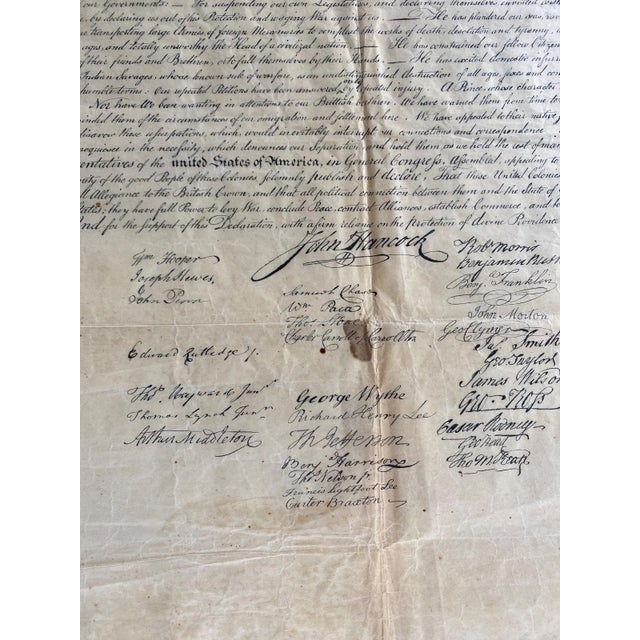 our Governments: — For suspending our own Legislatures, and declaring themselves invested with
by declaring us out of his Protection and waging War against us. — He has plundered our seas, rava
transporting large Armies of foreign Mercenaries to compleat the works of death, desolation and tyranny, a
ages, and totally unworthy the Head of a civilized nation. — He has constrained our fellow Citizen
of their friends and Brethren, or to fall themselves by their Hands. — He has excited domestic insurr
Indian Savages, whose known rule of warfare, is an undistinguished destruction of all ages, sexes and con
humble terms: Our repeated Petitions have been answered only by repeated injury. A Prince, whose character
Nor have We been wanting in attentions to our Brittish brethren. We have warned them from time to
inded them of the circumstances of our emigration and settlement here. We have appealed to their native j
disavow these usurpations, which, would inevitably interrupt our connections and correspondence
acquiesce in the necessity, which denounces our Separation, and hold them, as we hold the rest of man
entatives of the united States of America, in General Congress, Assembled, appealing to
ity of the good People of these Colonies, solemnly publish and declare, That these United Colonies
all Allegiance to the British Crown, and that all political connection between them and the State of
States; they have full Power to levy War, conclude Peace, contract Alliances, establish Commerce, and to
nd for the support of this Declaration, with a firm reliance on the Protection of divine Providence
John Hancock
Robt Morris
Wm Hooper
Benjamin Rush
Joseph Hewes,
Benja. Franklin
John Penn
Samuel Chase
John Morton
Wm Paca
Geo Clymer
Thos. Stone
Jas. Smith
Charles Carroll of Carrollton
Geo. Taylor
Edward Rutledge /.
James Wilson
Geo. Ross
Thos. Heyward Junr.
George Wythe
Caesar Rodney
Thomas Lynch Junr.
Richard Henry Lee
Geo Read
Arthur Middleton
Th Jefferson
Tho M:Kean
Benja. Harrison
Thos Nelson jr.
Francis Lightfoot Lee
Carter Braxton